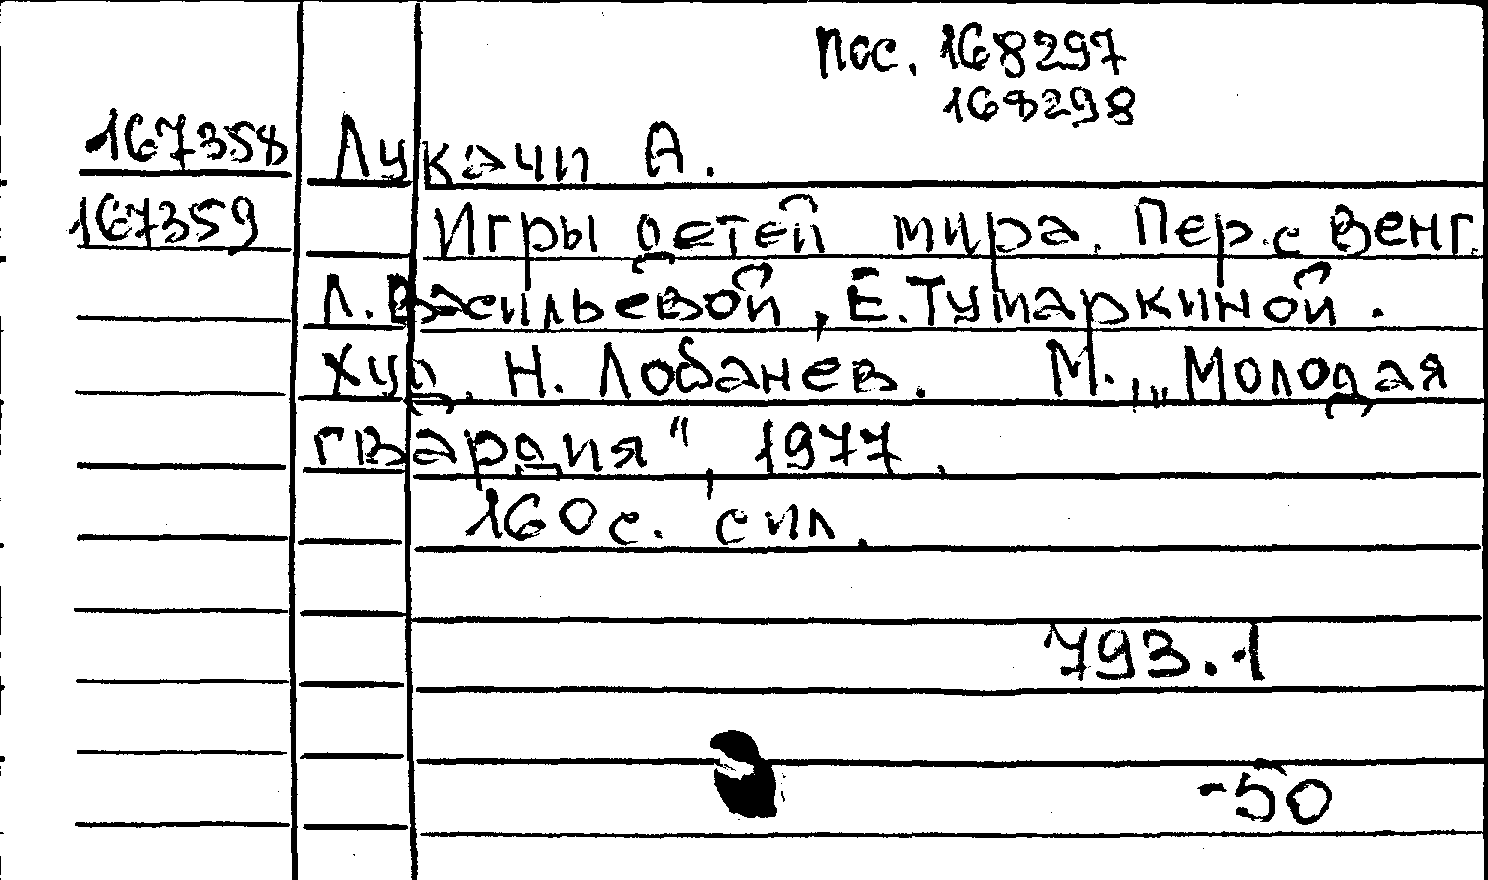 Пос. 168297
168298
167358 Лукачи А.
167359 Игры детей мира. Пер. с венг.
Л. Васильевой, Е. Тумаркиной.
Худ. Н. Лобанев. М., „Молодая
гвардия", 1977.
160 с. с ил.
793.1
-50